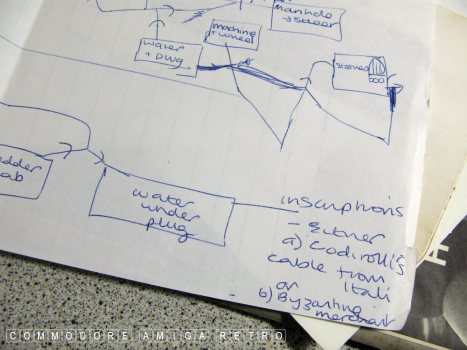 manhole
→ sewer
machine
+ wheel
water
+ plug
statues
water
under
plug
inscriptions
- Either
a)
cable from
Itali
or
b) Byzantine
merchant
COMMODORE AMIGA RETRO